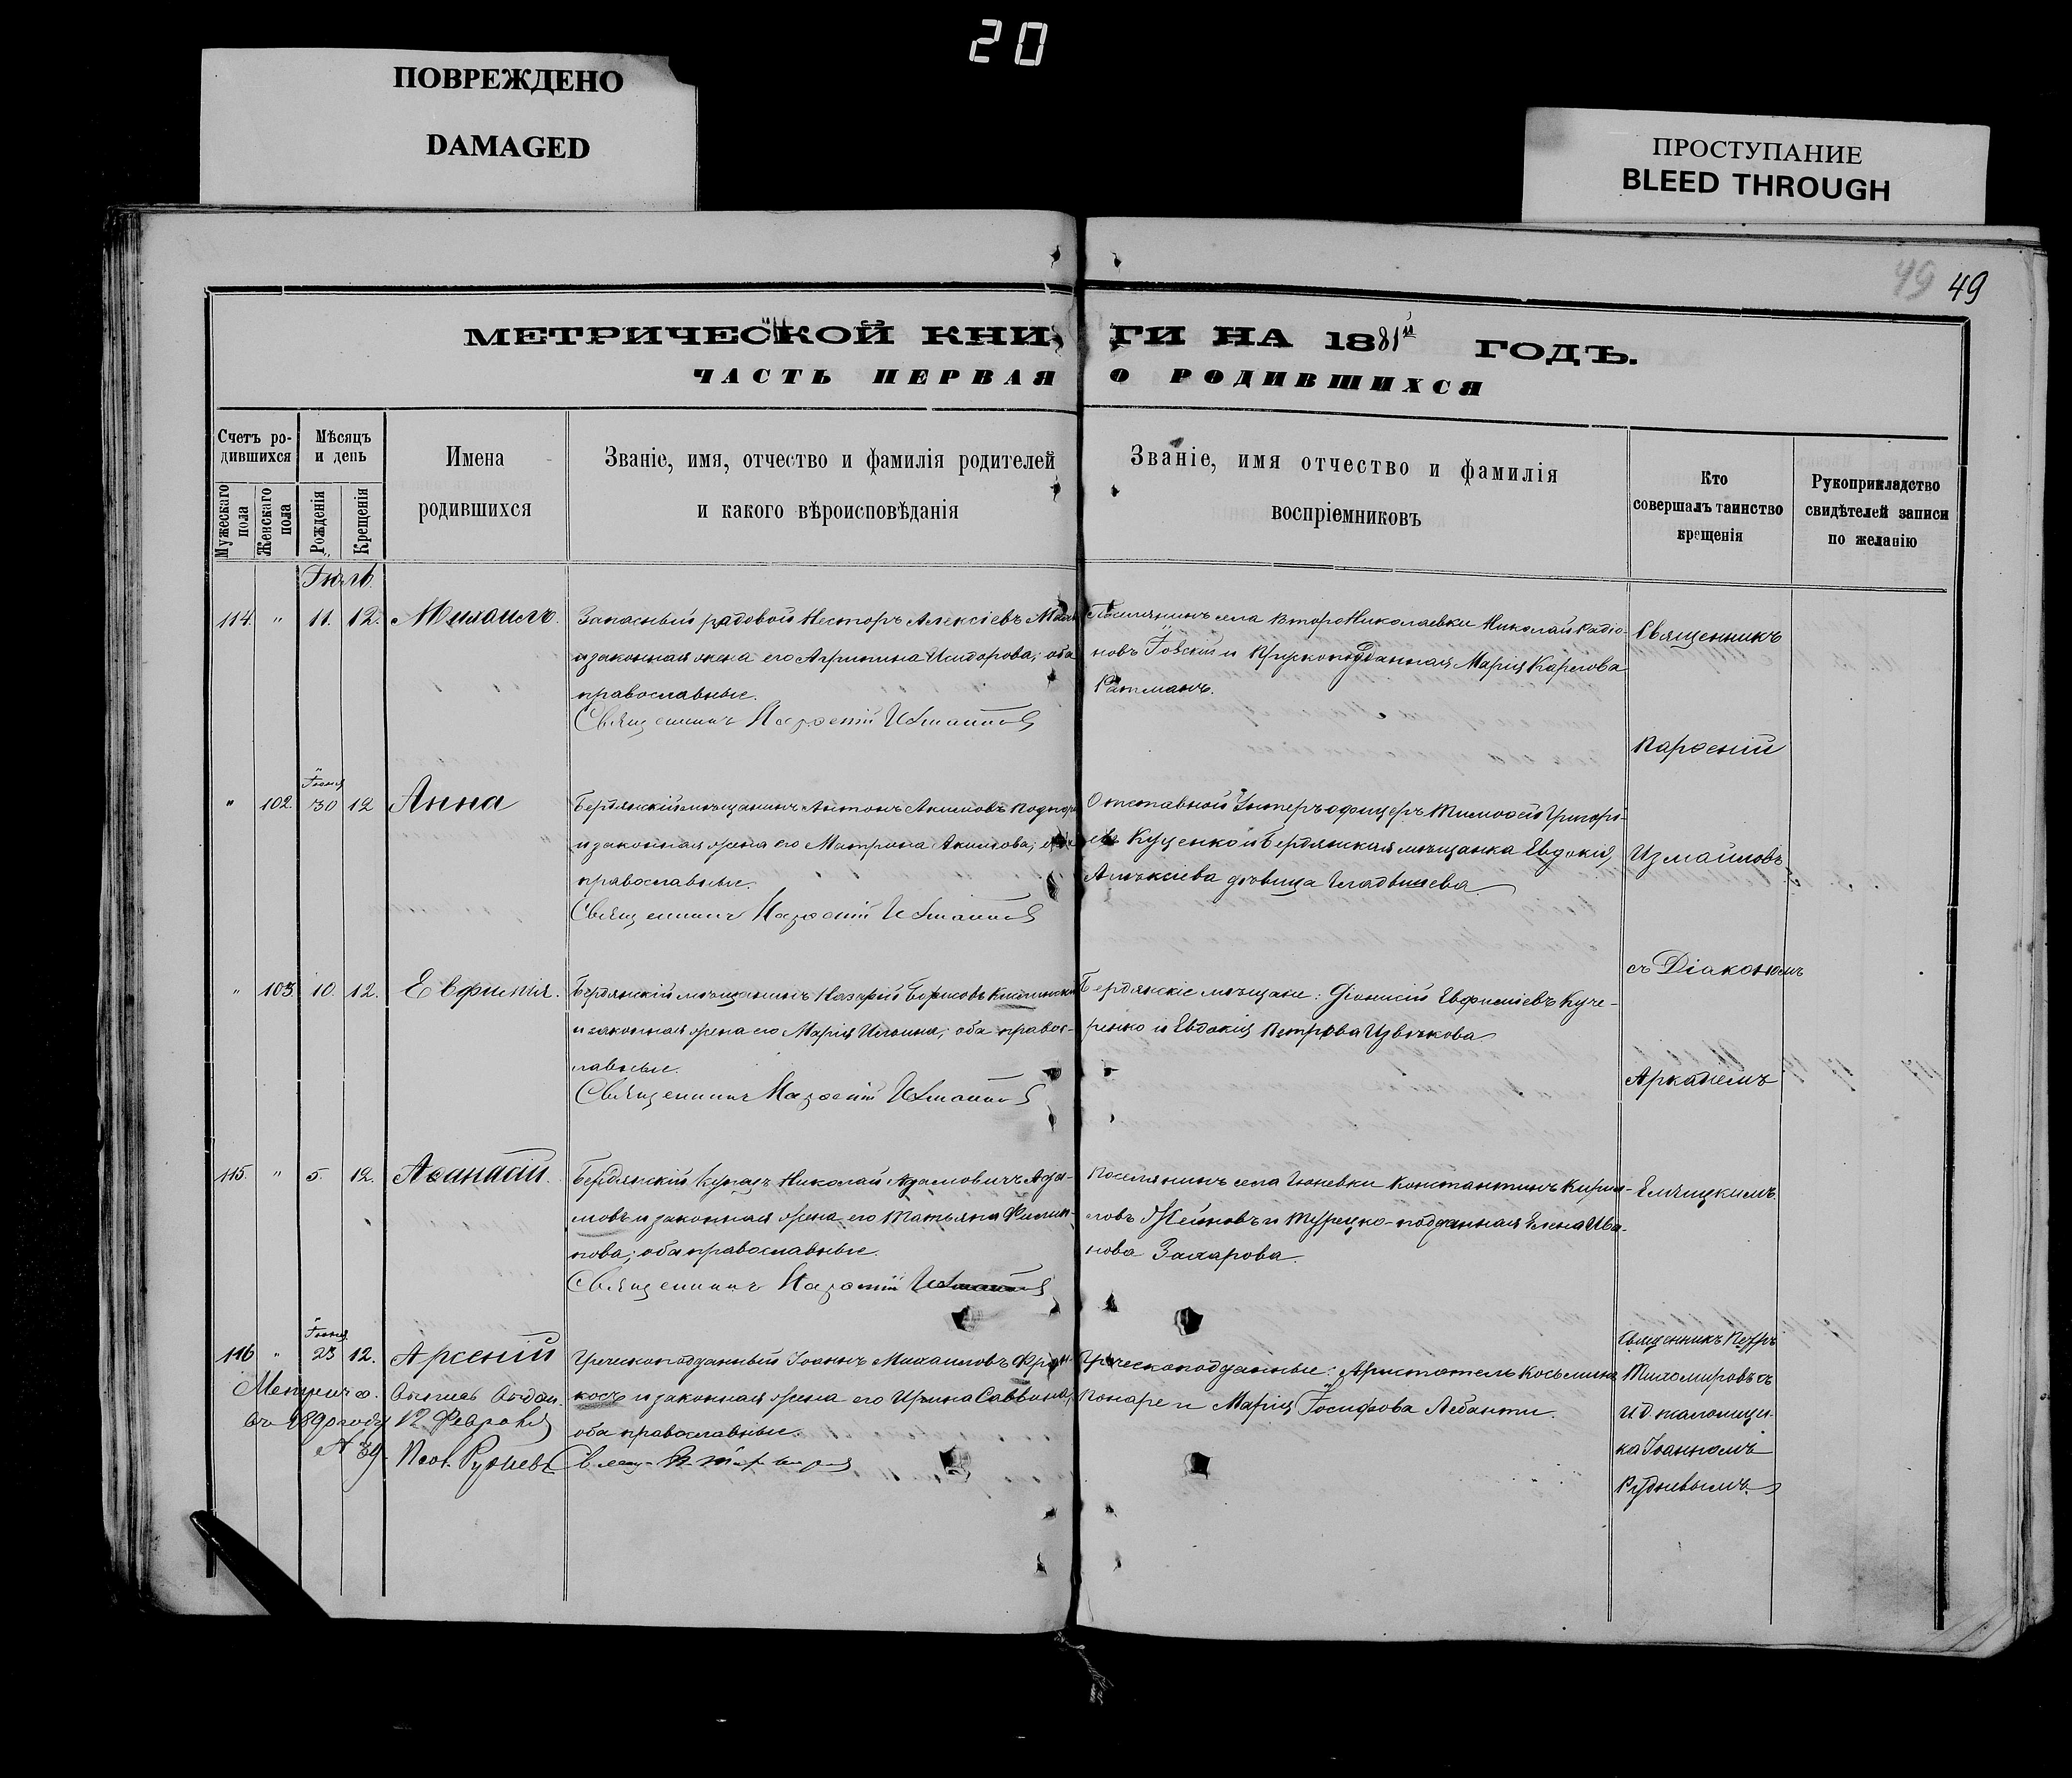 20
ПОВРЕЖДЕНО
DAMAGED
ПРОСТУПАНИЕ
BLEED THROUGH
49 49
МЕТРИЧЕСКОЙ КНИГИ НА 1881й ГОДЪ.
ЧАСТЬ ПЕРВАЯ О РОДИВШИХСЯ
Счетъ ро-
дившихся
Мужескаго пола
Женскаго пола
Мѣсяцъ
и день
Рожденія
Крещенія
Имена
родившихся
Званіе, имя, отчество и фамилія родителей
и какого вѣроисповѣданія
Званіе, имя отчество и фамилія
воспріемниковъ
Кто
совершалъ таинство
крещенія
Рукоприкладство
свидѣтелей записи
по желанію
Іюль.
114. " 11. 12. Михаилъ.
Запасный рядовой Несторъ Алексіевъ
и законная жена его Агрипина Исидорова; оба
православные.
Священникъ Парѳеній Измаиловъ
Поселянинъ села ВтороНиколаевки Николай Радіо-
новъ и Прускоподданная Марія Карлова
Ратманъ.
Священникъ
Парѳеній
Измаиловъ
съ Діакономъ
Аркадіемъ
" 102. Іюня 30 12 Анна
Бердянскій мѣщанинъ Антонъ Акимовъ
и законная жена его Матрона Акимова; оба
православные.
Священникъ Парѳеній Измаиловъ
Отставной Унтеръ офицеръ Тимоѳей Григорі-
евъ Куценко и Бердянская мѣщанка Евдокія
Алексіева дѣвица Гладышева
" 103. 10. 12. Евфимія.
Бердянскій мѣщанинъ Назарій Борисовъ
и законная жена его Марія Ильина; оба право-
славные.
Священникъ Парѳеній Измаиловъ
Бердянскіе мѣщане: Діонисій Евфиміевъ Куче-
ренко и Евдокія Петрова Извѣкова
115. " 5. 12. Аѳанасій.
Бердянскій Купецъ Николай Адамовичъ Ада-
мовъ и законная жена его Татьяна Филип-
пова; оба православные.
Священникъ Парѳеній Измаиловъ
Поселянинъ села Гюневки Константинъ Кирил-
ловъ и Турецко-подданная Елена Ива-
нова Захарова.
116 " Іюня 23 12. Арсеній
Греческоподданный Іоаннъ Михаиловъ
и законная жена его Ирина Саввина,
оба православные.
Греческоподданные: Аристотель Косьмина
и Марія Іосифова
Священникъ Петръ
Тихомировъ съ
и.д. псаломщи-
ка Іоанномъ
Рудневымъ.
въ 1890 году 12 Февраля
№ 39. Псал. Рудневъ